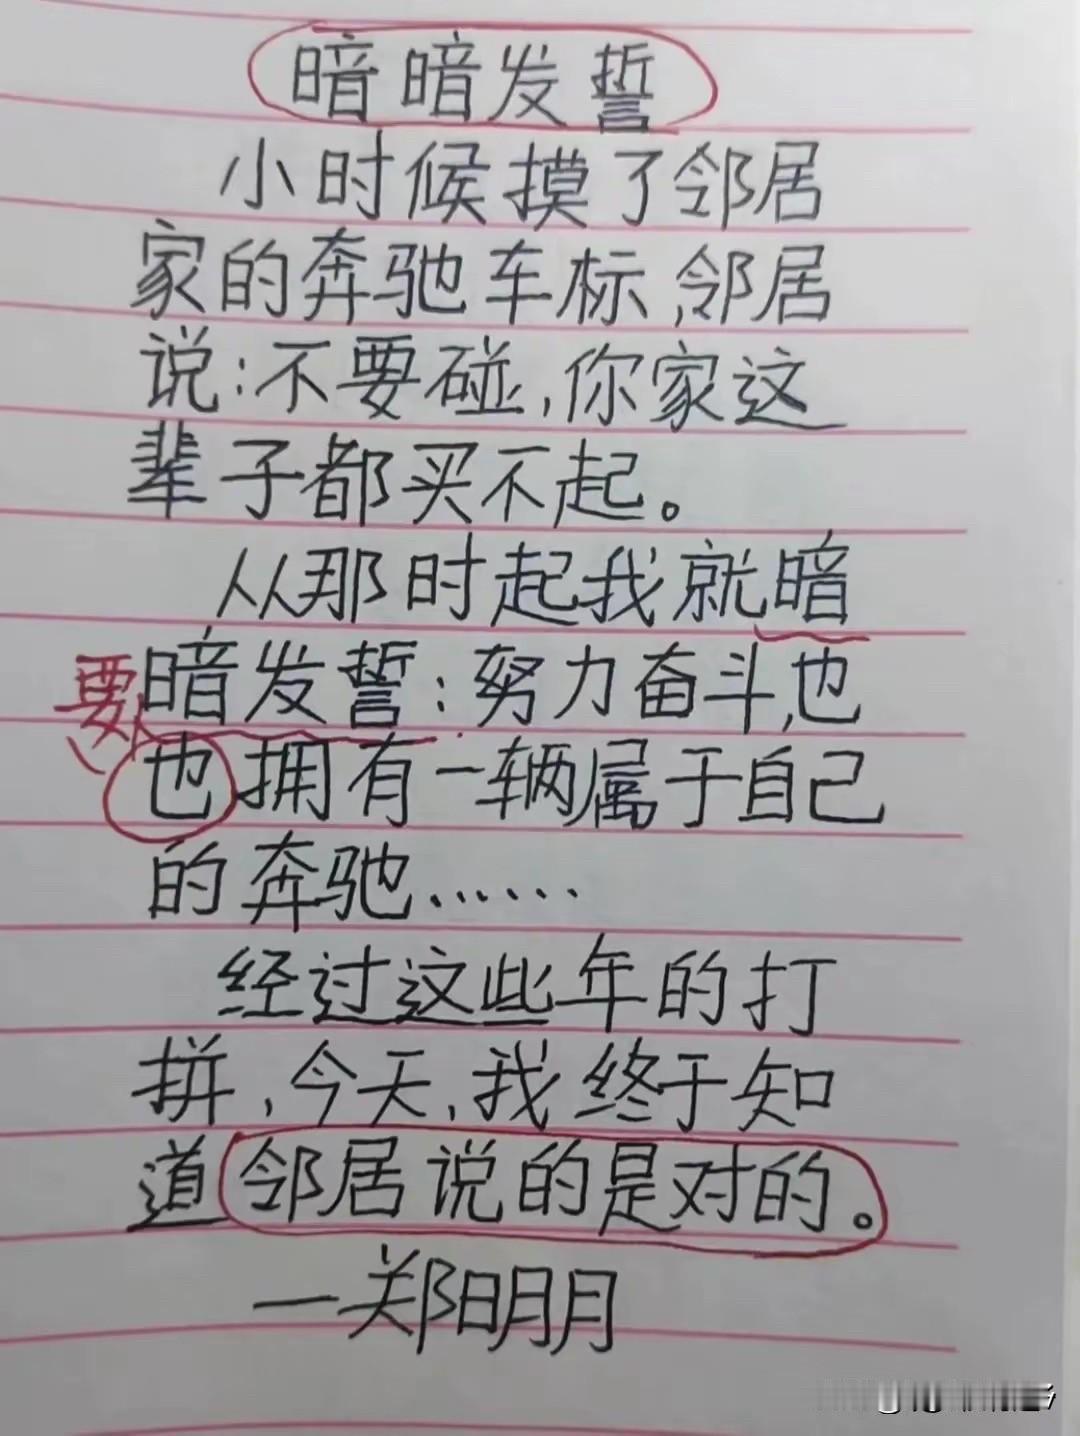 暗暗发誓
小时候摸了邻居
家的奔驰车标,邻居
说:不要碰,你家这
辈子都买不起。
从那时起我就暗
暗发誓:努力奋斗,也
要
也拥有一辆属于自己
的奔驰……
经过这些年的打
拼,今天,我终于知
道邻居说的是对的。
—郑明月